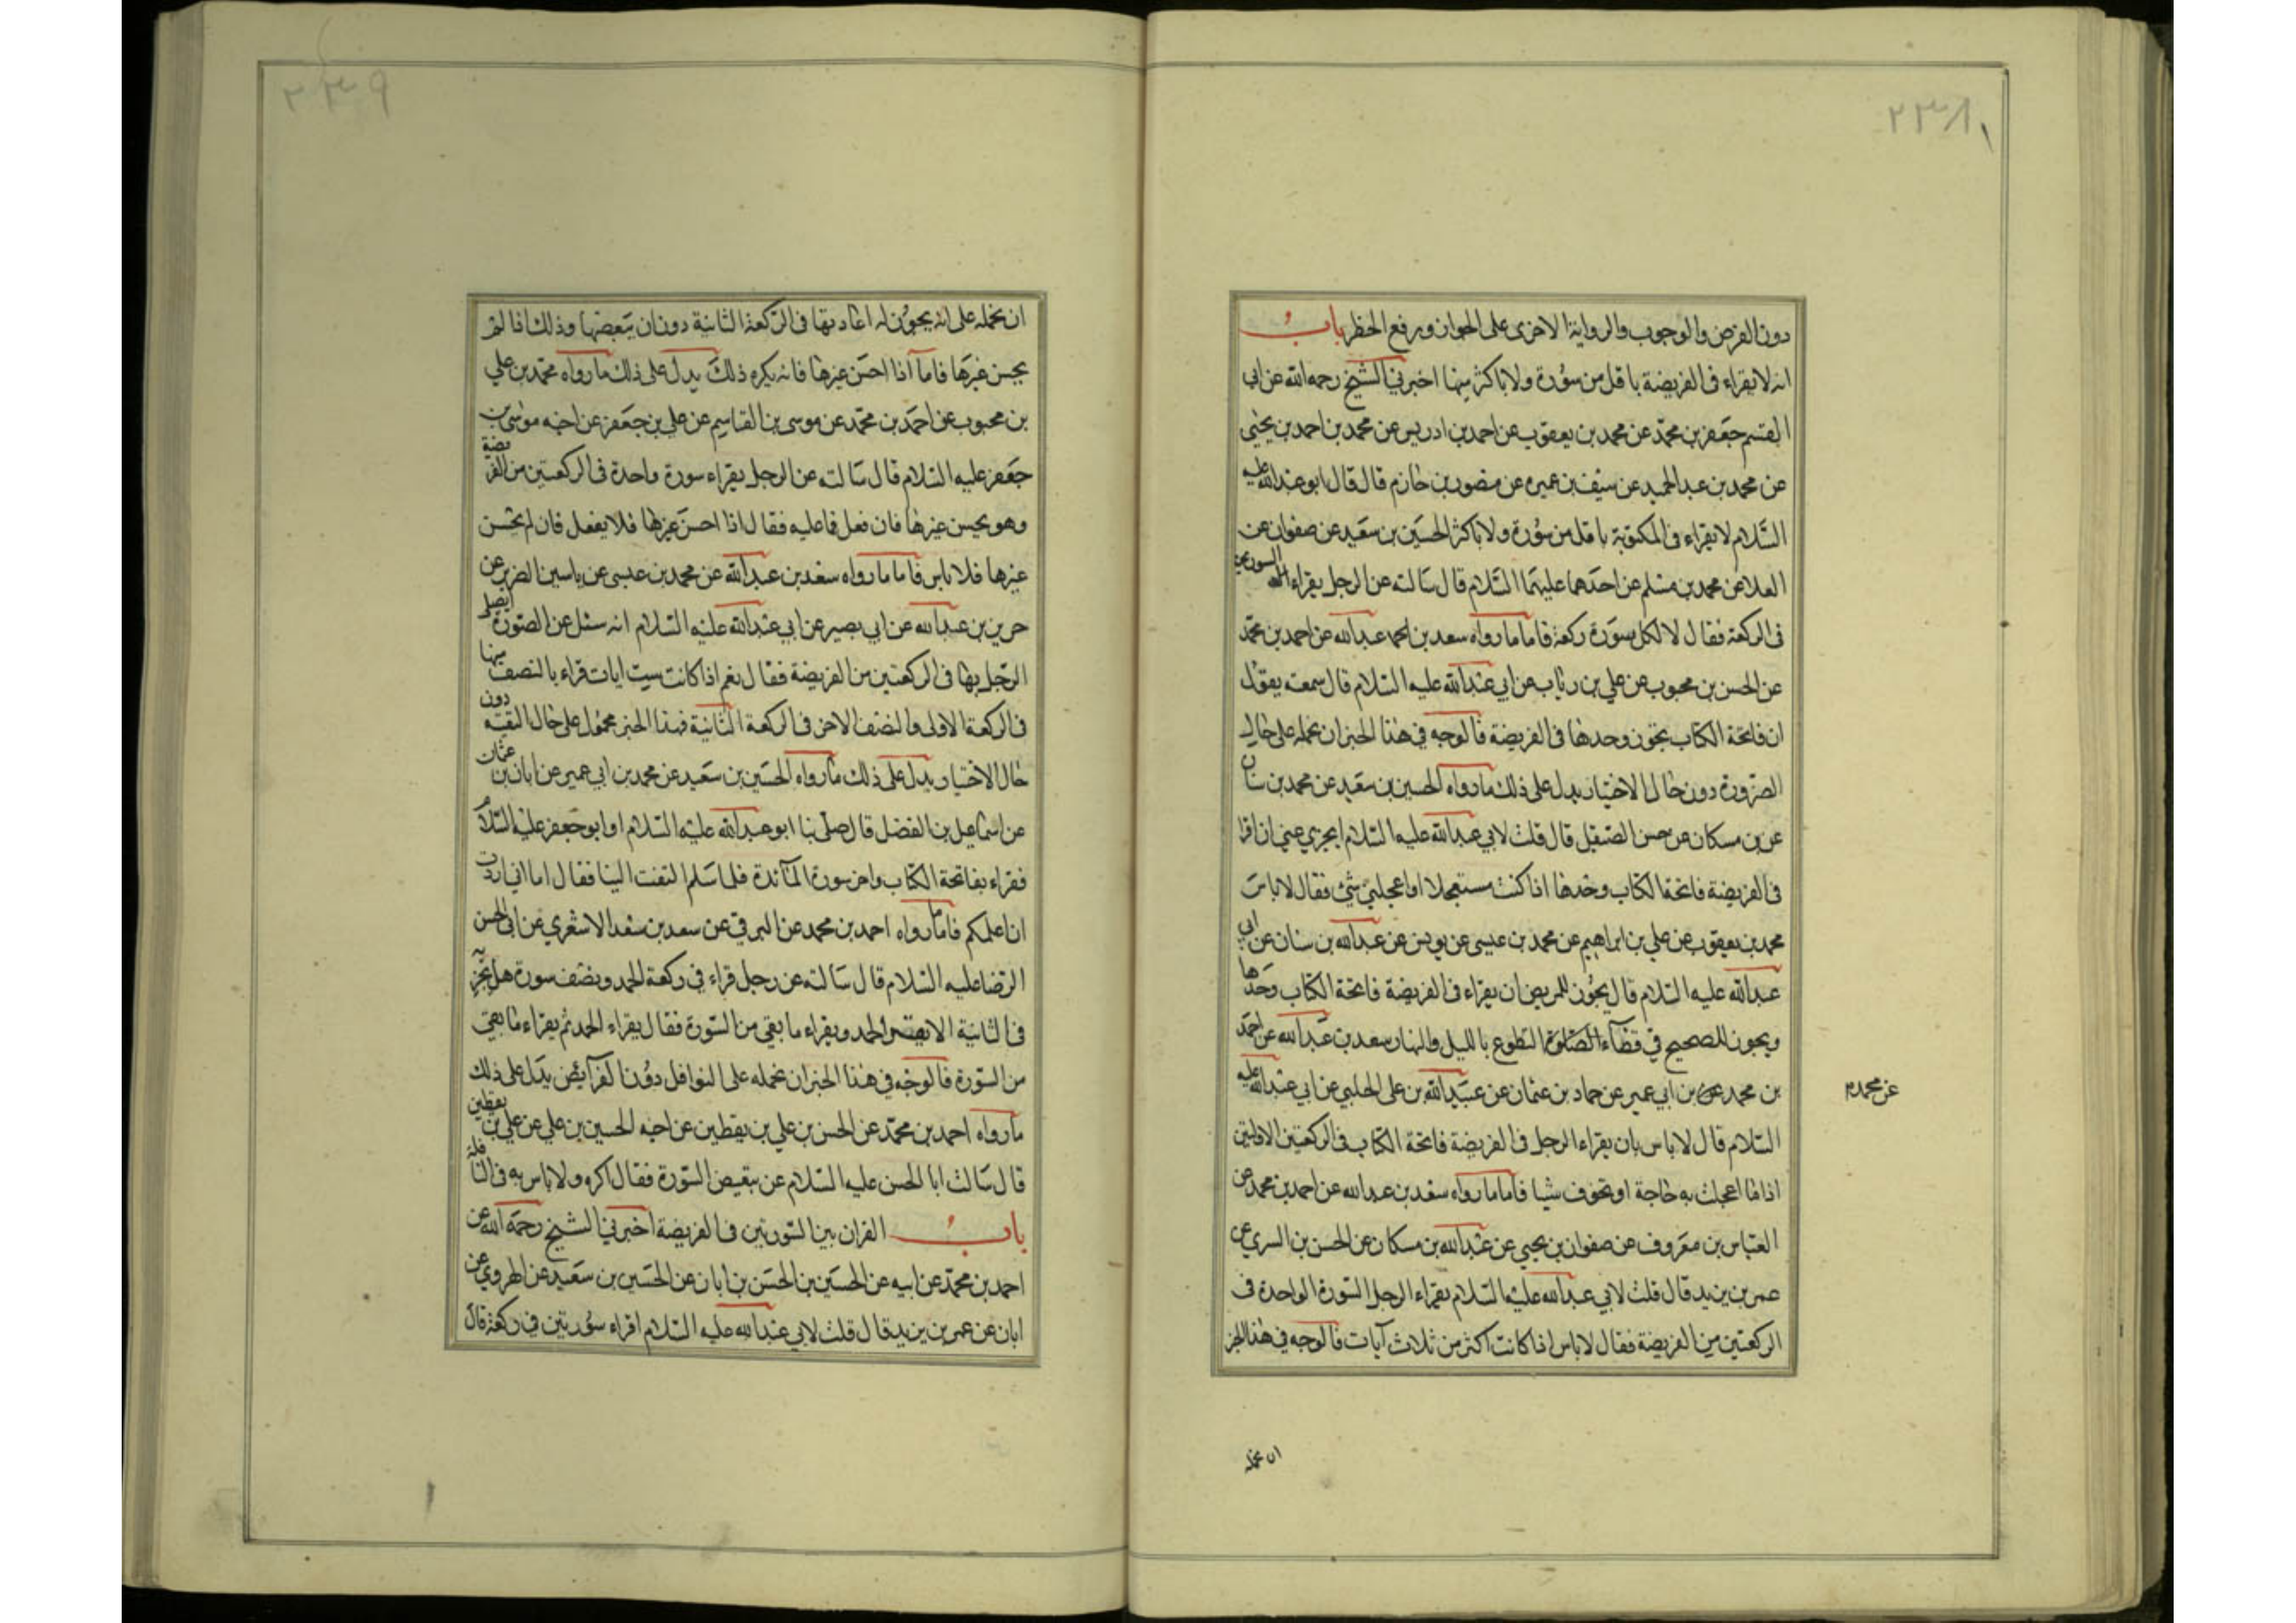 ٢٣٨
دون الفرض والوجوب والرواية الاخرى على الجواز ورفع الحظر باب
انه لا يقراء فى الفريضة باقل من سورة ولا باكثر منها اخبرني الشيخ رحمه الله عن ابى
القسم جعفر بن محمد عن محمد بن يعقوب عن احمد بن ادريس عن محمد بن احمد بن يحيى
عن محمد بن عبد الحميد عن سيف بن عميره عن منصور بن حازم قال قال ابو عبد الله عليه
السلام لا يقراء فى المكتوبة باقل من سورة ولا باكثر الحسين بن سعيد عن صفوان عن
العلا عن محمد بن مسلم عن احدهما عليهما السلام قال سالته عن الرجل يقراء السورتين
فى الركعة فقال لا لكل سورة ركعة فاما ما رواه سعد بن عبد الله عن احمد بن محمد
عن الحسن بن محبوب عن علي بن رئاب عن ابي عبد الله عليه السلام قال سمعته يقول
ان فاتحة الكتاب تجوز وحدها فى الفريضة فالوجه في هذا الخبر ان نحمله على حال
الضرورة دون حال الاختيار يدل على ذلك ما رواه الحسين بن سعيد عن محمد بن سنان
عن بن مسكان عن حسن الصيقل قال قلت لابي عبد الله عليه السلام ايجزي عني ان اقرا
فى الفريضة فاتحة الكتاب وحدها اذا كنت مستعجلا او اعجلني شئ فقال لا باس
محمد بن يعقوب عن علي بن ابراهيم عن محمد بن عيسى عن يونس عن عبد الله بن سنان عن ابي
عبد الله عليه السلام قال يجوز للمريض ان يقراء فى الفريضة فاتحة الكتاب وحدها
ويجوز للصحيح في قضاء الصلوة التطوع بالليل والنهار سعد بن عبد الله عن احمد
بن محمد عن بن ابي عمير عن حماد بن عثمان عن عبيد الله بن على الحلبي عن ابي عبد الله عليه
عن محمد
السلام قال لا باس بان يقراء الرجل فى الفريضة فاتحة الكتاب فى الركعتين الاولتين
اذا ما اعجلت به حاجة او تخوف شيئا فاما ما رواه سعد بن عبد الله عن احمد بن محمد عن
العباس بن معروف عن صفوان بن يحيى عن عبد الله بن مسكان عن الحسن بن السري عن
عمر بن يزيد قال قلت لابي عبد الله عليه السلام يقراء الرجل السورة الواحدة فى
الركعتين من الفريضة فقال لا باس اذا كانت اكثر من ثلاث آيات فالوجه في هذا الخبر
ان نحمله
٢٣٩
ان نحمله على انه يجوز له اعادتها فى الركعة الثانية دون ان يبعضها وذلك اذا لم
يحسن غيرها فاما اذا احسن غيرها فانه يكره ذلك يدل على ذلك ما رواه محمد بن علي
بن محبوب عن احمد بن محمد عن موسى بن القاسم عن علي بن جعفر عن اخيه موسى بن
جعفر عليه السلام قال سالته عن الرجل يقراء سورة واحدة فى الركعتين من الفريضة
وهو يحسن غيرها فان فعل فما عليه فقال اذا احسن غيرها فلا يفعل فان لم يحسن
غيرها فلا باس فاما ما رواه سعد بن عبد الله عن محمد بن عيسى عن ياسين الضرير عن
حريز بن عبد الله عن ابي بصير عن ابي عبد الله عليه السلام انه سئل عن السورة ايصلي
الرجل بها فى الركعتين من الفريضة فقال نعم اذا كانت ست ايات قراء بالنصف منها
فى الركعة الاولى والنصف الاخر فى الركعة الثانية فهذا الخبر محمول على حال التقية دون
حال الاختيار يدل على ذلك ما رواه الحسين بن سعيد عن محمد بن ابي عمير عن ابان بن عثمان
عن اسماعيل بن الفضل قال صلى بنا ابو عبد الله عليه السلام او ابو جعفر عليه السلام
فقراء بفاتحة الكتاب واخر سورة المائدة فلما سلم التفت الينا فقال اما اني اردت
ان اعلمكم فاما رواه احمد بن محمد عن البرقي عن سعد بن سعد الاشعري عن ابي الحسن
الرضا عليه السلام قال سالته عن رجل قراء في ركعة الحمد ونصف سورة هل يجزيه
فى الثانية الا يقراء الحمد ويقراء ما بقي من السورة فقال يقراء الحمد ثم يقراء ما بقي
من السورة فالوجه في هذا الخبر ان نحمله على النوافل دون الفرآئض يدل على ذلك
ما رواه احمد بن محمد عن الحسن بن علي بن يقطين عن اخيه الحسين بن علي عن علي بن يقطين
قال سالت ابا الحسن عليه السلام عن تبعيض السورة فقال اكره ولا باس به فى النافلة
باب القران بين السورتين فى الفريضة اخبرني الشيخ رحمه الله عن
احمد بن محمد عن ابيه عن الحسين بن الحسن بن ابان عن الحسين بن سعيد عن الهروي عن
ابان عن عمر بن يزيد قال قلت لابي عبد الله عليه السلام اقراء سورتين في ركعة قال